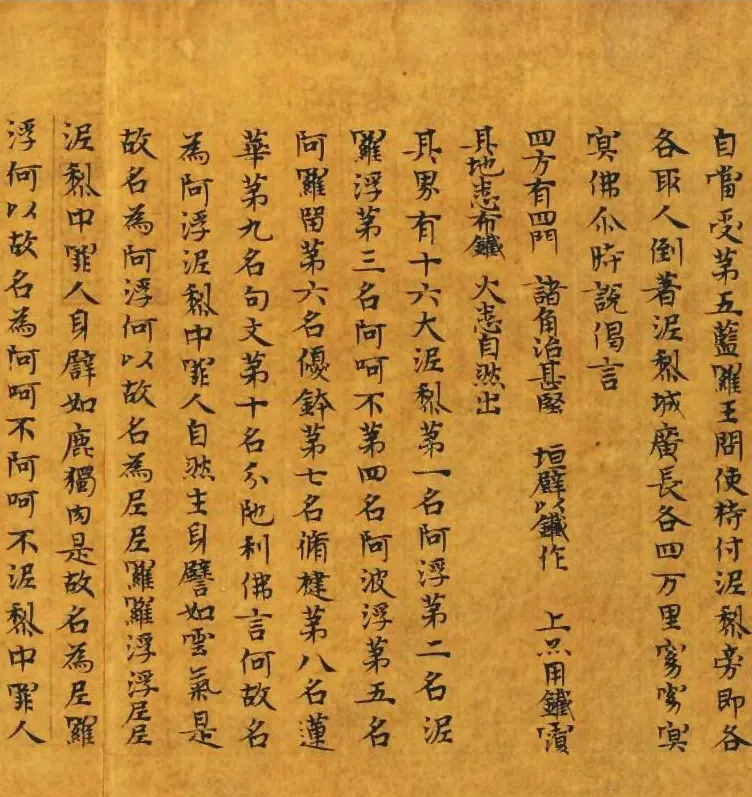 自當受第五藍羅王問使持付泥梨旁即各
各取人倒著泥梨城廣長各四万里窈窈冥
冥佛尒時說偈言
四方有四門　諸角治甚堅　垣壁以鐵作　上亦用鐵覆
其地悉布鐵　火悉自然出
其界有十六大泥梨第一名阿浮第二名泥
羅浮第三名阿呵不第四名阿波浮第五名
阿羅留第六名優鉢第七名脩揵第八名蓮
華第九名句文第十名分阤利佛言何故名
為阿浮泥梨中罪人自然生身譬如雲氣是
故名為阿浮何以故名為尼尼羅羅浮浮尼尼
泥梨中罪人身譬如鹿獨肉是故名為尼羅
浮何以故名為阿呵不阿呵不泥梨中罪人